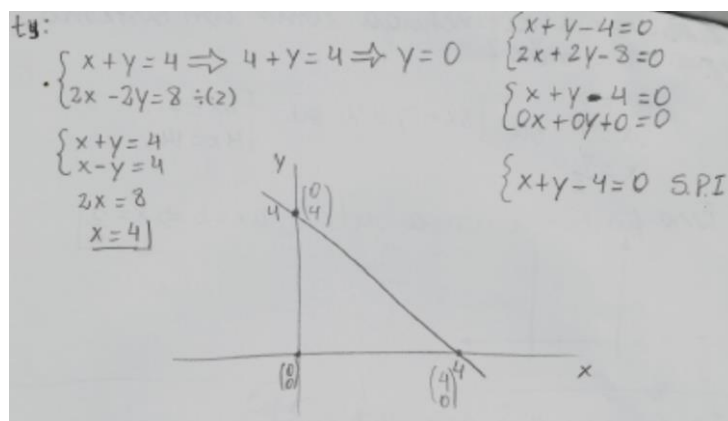 ty:
{ x + y = 4 ⇒ 4 + y = 4 ⇒ y = 0
{ 2x - 2y = 8 ÷(2)
{ x + y = 4
{ x - y = 4
2x = 8
x = 4
{ x + y - 4 = 0
{ 2x + 2y - 8 = 0
{ x + y - 4 = 0
{ 0x + 0y + 0 = 0
{ x + y - 4 = 0 S.P.I
y
4 (0 4)
(0 0) (4 0) 4 x